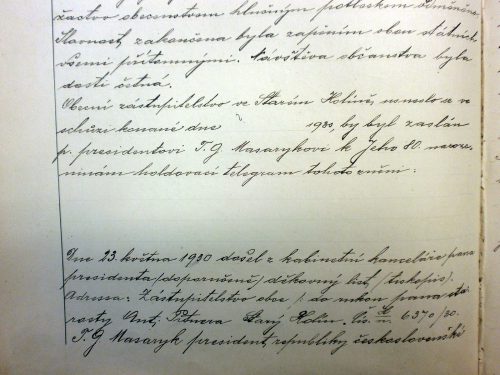 žactvo obecenstvem hlučným potleskem odměněno.
Slavnost zakončena byla zapěním obou státních
všemi přítomnými. Návštěva občanstva byla
dosti četná.
Obecní zastupitelstvo ve Starém Holíně, usneslo se ve
schůzi konané dne 1930, by byl zaslán
p. presidentovi T. G Masarykovi k Jeho 80. naroze-
ninám holdovací telegram tohoto znění:
Dne 23. května 1930 došel z kabinetní kanceláře pana
presidenta /doporučeně/ děkovný list, /tiskopis/.
Adressa: Zastupitelstvo obce /: do rukou pana sta-
rosty Ant. Starý Holín. čís. 6370/30.
T. G Masaryk president republiky československé